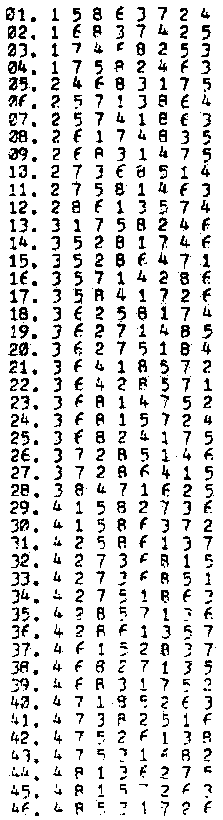 01. 1 5 8 6 3 7 2 4
02. 1 6 8 3 7 4 2 5
03. 1 7 4 6 8 2 5 3
04. 1 7 5 8 2 4 6 3
05. 2 4 6 8 3 1 7 5
06. 2 5 7 1 3 8 6 4
07. 2 5 7 4 1 8 6 3
08. 2 6 1 7 4 8 3 5
09. 2 6 8 3 1 4 7 5
10. 2 7 3 6 8 5 1 4
11. 2 7 5 8 1 4 6 3
12. 2 8 6 1 3 5 7 4
13. 3 1 7 5 8 2 4 6
14. 3 5 2 8 1 7 4 6
15. 3 5 2 8 6 4 7 1
16. 3 5 7 1 4 2 8 6
17. 3 5 8 4 1 7 2 6
18. 3 6 2 5 8 1 7 4
19. 3 6 2 7 1 4 8 5
20. 3 6 2 7 5 1 8 4
21. 3 6 4 1 8 5 7 2
22. 3 6 4 2 8 5 7 1
23. 3 6 8 1 4 7 5 2
24. 3 6 8 1 5 7 2 4
25. 3 6 8 2 4 1 7 5
26. 3 7 2 8 5 1 4 6
27. 3 7 2 8 6 4 1 5
28. 3 8 4 7 1 6 2 5
29. 4 1 5 8 2 7 3 6
30. 4 1 5 8 6 3 7 2
31. 4 2 5 8 6 1 3 7
32. 4 2 7 3 6 8 1 5
33. 4 2 7 3 6 8 5 1
34. 4 2 7 5 1 8 6 3
35. 4 2 8 5 7 1 3 6
36. 4 2 8 6 1 3 5 7
37. 4 6 1 5 2 8 3 7
38. 4 6 8 2 7 1 3 5
39. 4 6 8 3 1 7 5 2
40. 4 7 1 8 5 2 6 3
41. 4 7 3 8 2 5 1 6
42. 4 7 5 2 6 1 3 8
43. 4 7 5 3 1 6 8 2
44. 4 8 1 3 6 2 7 5
45. 4 8 1 5 7 2 6 3
46. 4 8 5 3 1 7 2 6